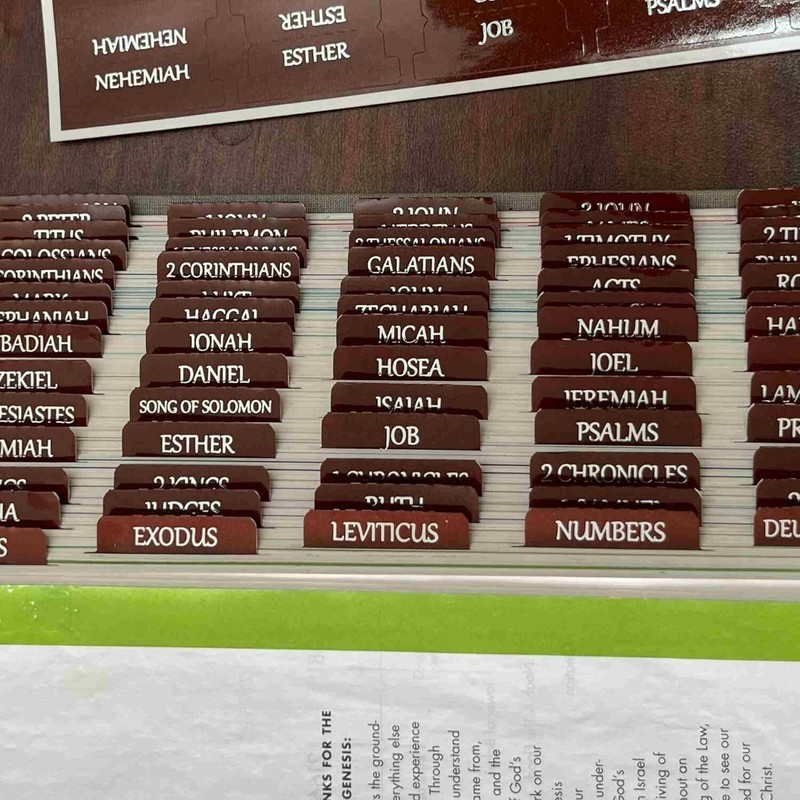 NEHEMIAH
ESTHER
NEHEMIAH
ESTHER
JOB
PSALMS
2 PETER
2 JOHN
3 JOHN
TITUS
PHILEMON
HEBREWS
JAMES
COLOSSIANS
2 THESSALONIANS
1 TIMOTHY
2 TI
ORINTHIANS
2 CORINTHIANS
GALATIANS
EPHESIANS
MARK
LUKE
JOHN
ACTS
RO
EPHANIAH
HAGGAI
ZECHARIAH
BADIAH
JONAH
MICAH
NAHUM
HA
ZEKIEL
DANIEL
HOSEA
JOEL
ESIASTES
SONG OF SOLOMON
ISAIAH
JEREMIAH
LAM
MIAH
ESTHER
JOB
PSALMS
PR
GS
2 KINGS
1 CHRONICLES
2 CHRONICLES
UA
JUDGES
RUTH
1 SAMUEL
2
S
EXODUS
LEVITICUS
NUMBERS
DEU
NKS FOR THE
GENESIS:
s the ground-
erything else
d experience
Through
understand
ame from,
and the
f God's
rk on our
esis
ur
under-
God's
n Israel
iving of
out an
g of the Law,
e to see our
ed for our
Christ.